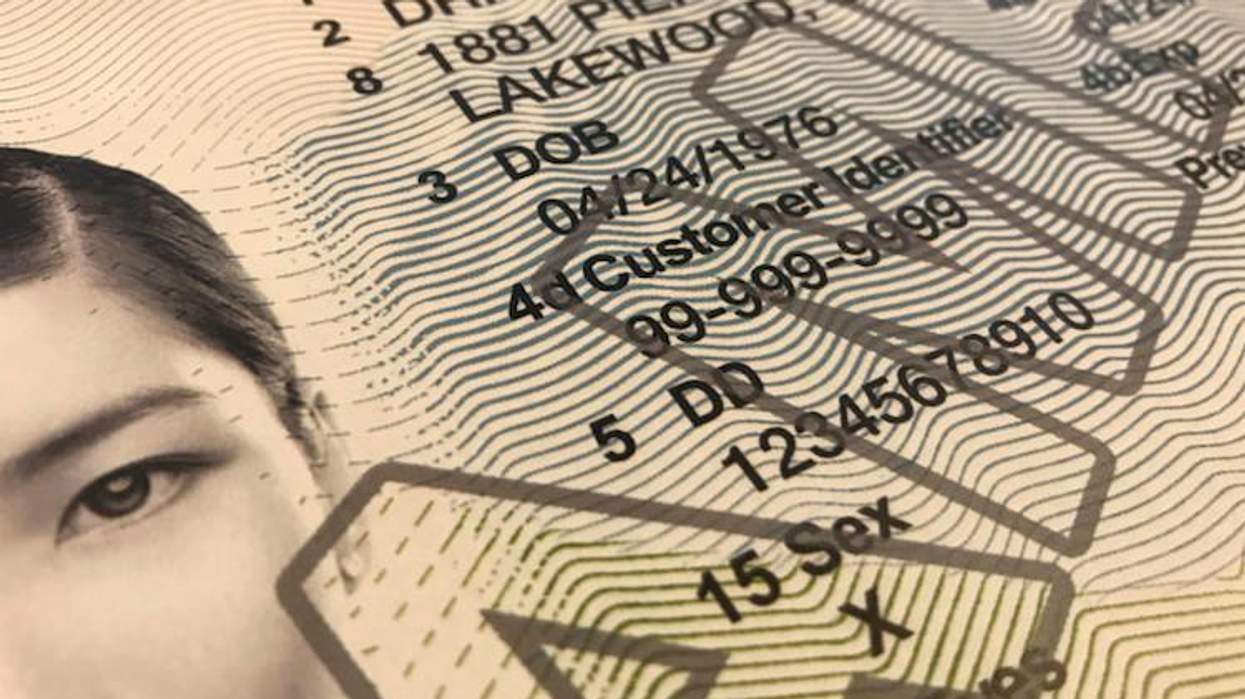 2
8 1881 PIE
LAKEWOOD,
3 DOB
04/24/1976
4d Customer Identifier
99-999-9999
5 DD
12345678910
15 Sex
X
4b Exp